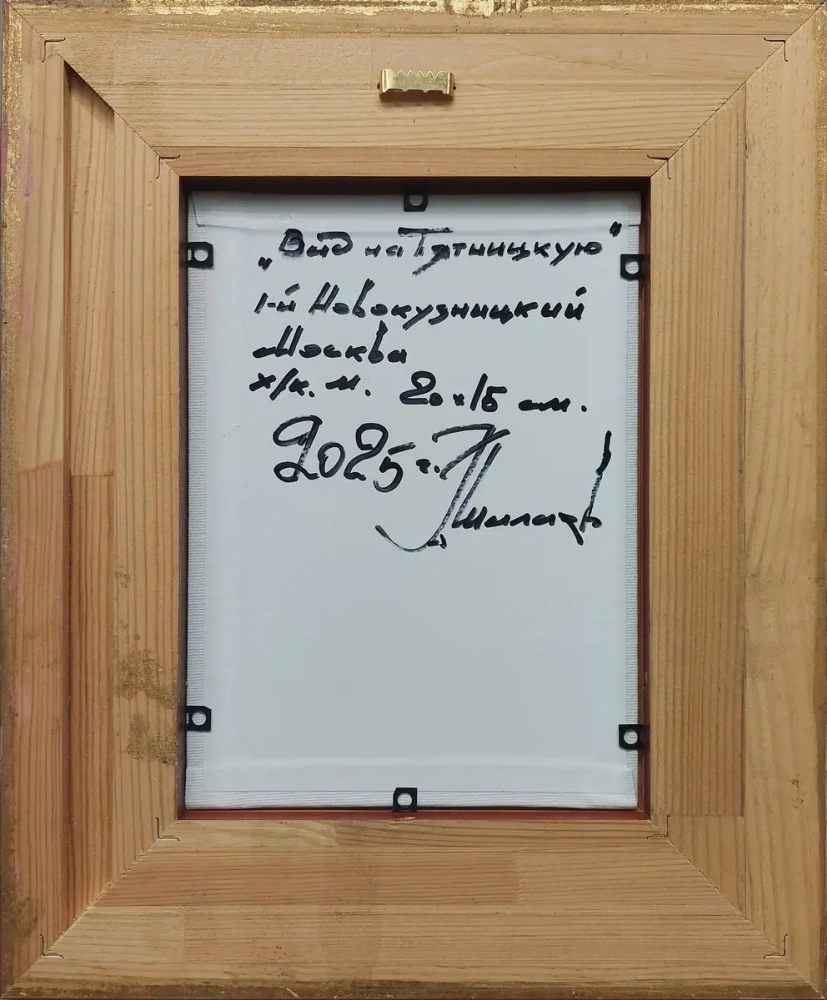 „Вид на Пятницкую"
1-й Новокузнецкий
Москва
х/к. м. 20х15 см.
2025 г.